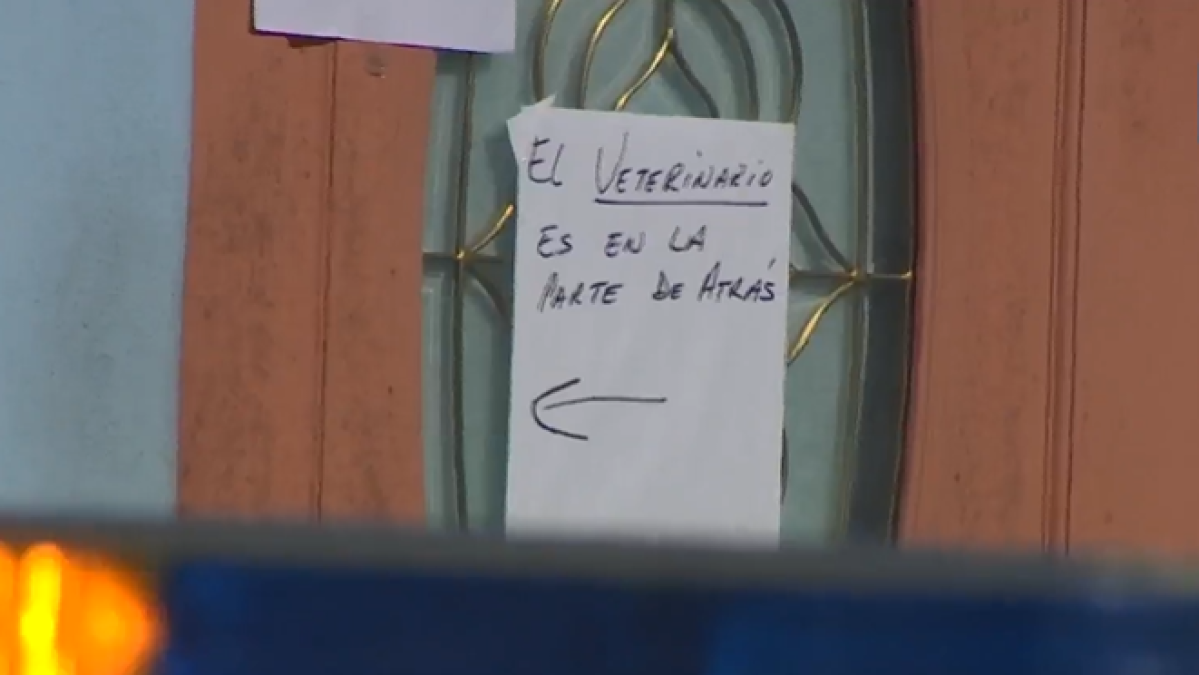 El VETERINARIO
ES EN LA
PARTE DE ATRÁS